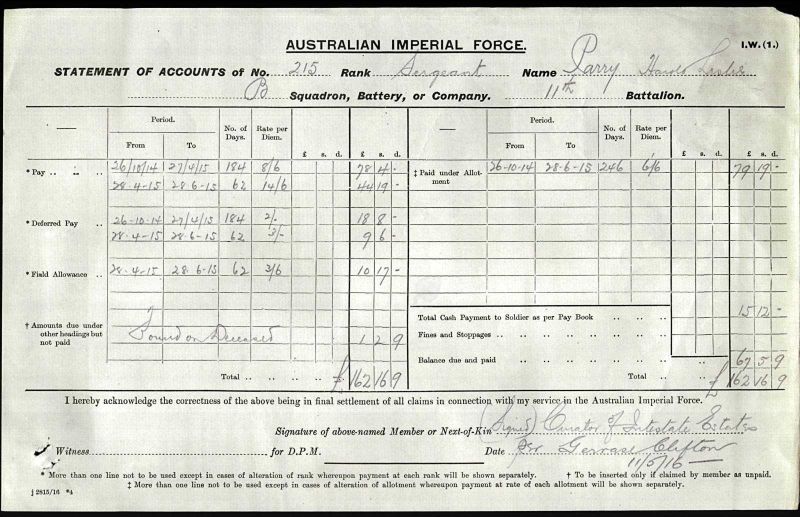 AUSTRALIAN IMPERIAL FORCE.
I.W.(1.)
STATEMENT OF ACCOUNTS of No. 215 Rank Sergeant Name Parry Harold Leslie
B Squadron, Battery, or Company. 11th Battalion.
Period. No. of Days. Rate per Diem. £ s. d.
From To
* Pay .. .. .. 26/10/14 27/4/15 184 8/6 78 4 -
28-4-15 28-6-15 62 14/6 44 19 -
* Deferred Pay .. 26-10-14 27/4/15 184 2/- 18 8 -
28-4-15 28-6-15 62 3/- 9 6 -
* Field Allowance .. 28-4-15 28-6-15 62 3/6 10 17 -
† Amounts due under other headings but not paid
Found on Deceased 1 2 9
Total .. .. .. .. £ 162 16 9
Period. No. of Days. Rate per Diem. £ s. d.
From To
‡ Paid under Allotment 26-10-14 28-6-15 246 6/6 79 19 -
Total Cash Payment to Soldier as per Pay Book .. .. .. 15 12 -
Fines and Stoppages .. .. .. .. .. .. ..
Balance due and paid .. .. .. .. .. .. 67 5 9
Total .. .. .. £ 162 16 9
I hereby acknowledge the correctness of the above being in final settlement of all claims in connection with my service in the Australian Imperial Force.
Signature of above-named Member or Next-of-Kin (Signed) Curator of Intestate Estates
Witness for D.P.M. Date Per Gervase Clifton
11/5/16
* More than one line not to be used except in cases of alteration of rank whereupon payment at each rank will be shown separately. † To be inserted only if claimed by member as unpaid.
‡ More than one line not to be used except in cases of alteration of allotment whereupon payment at rate of each allotment will be shown separately.
j 2815/16 *4